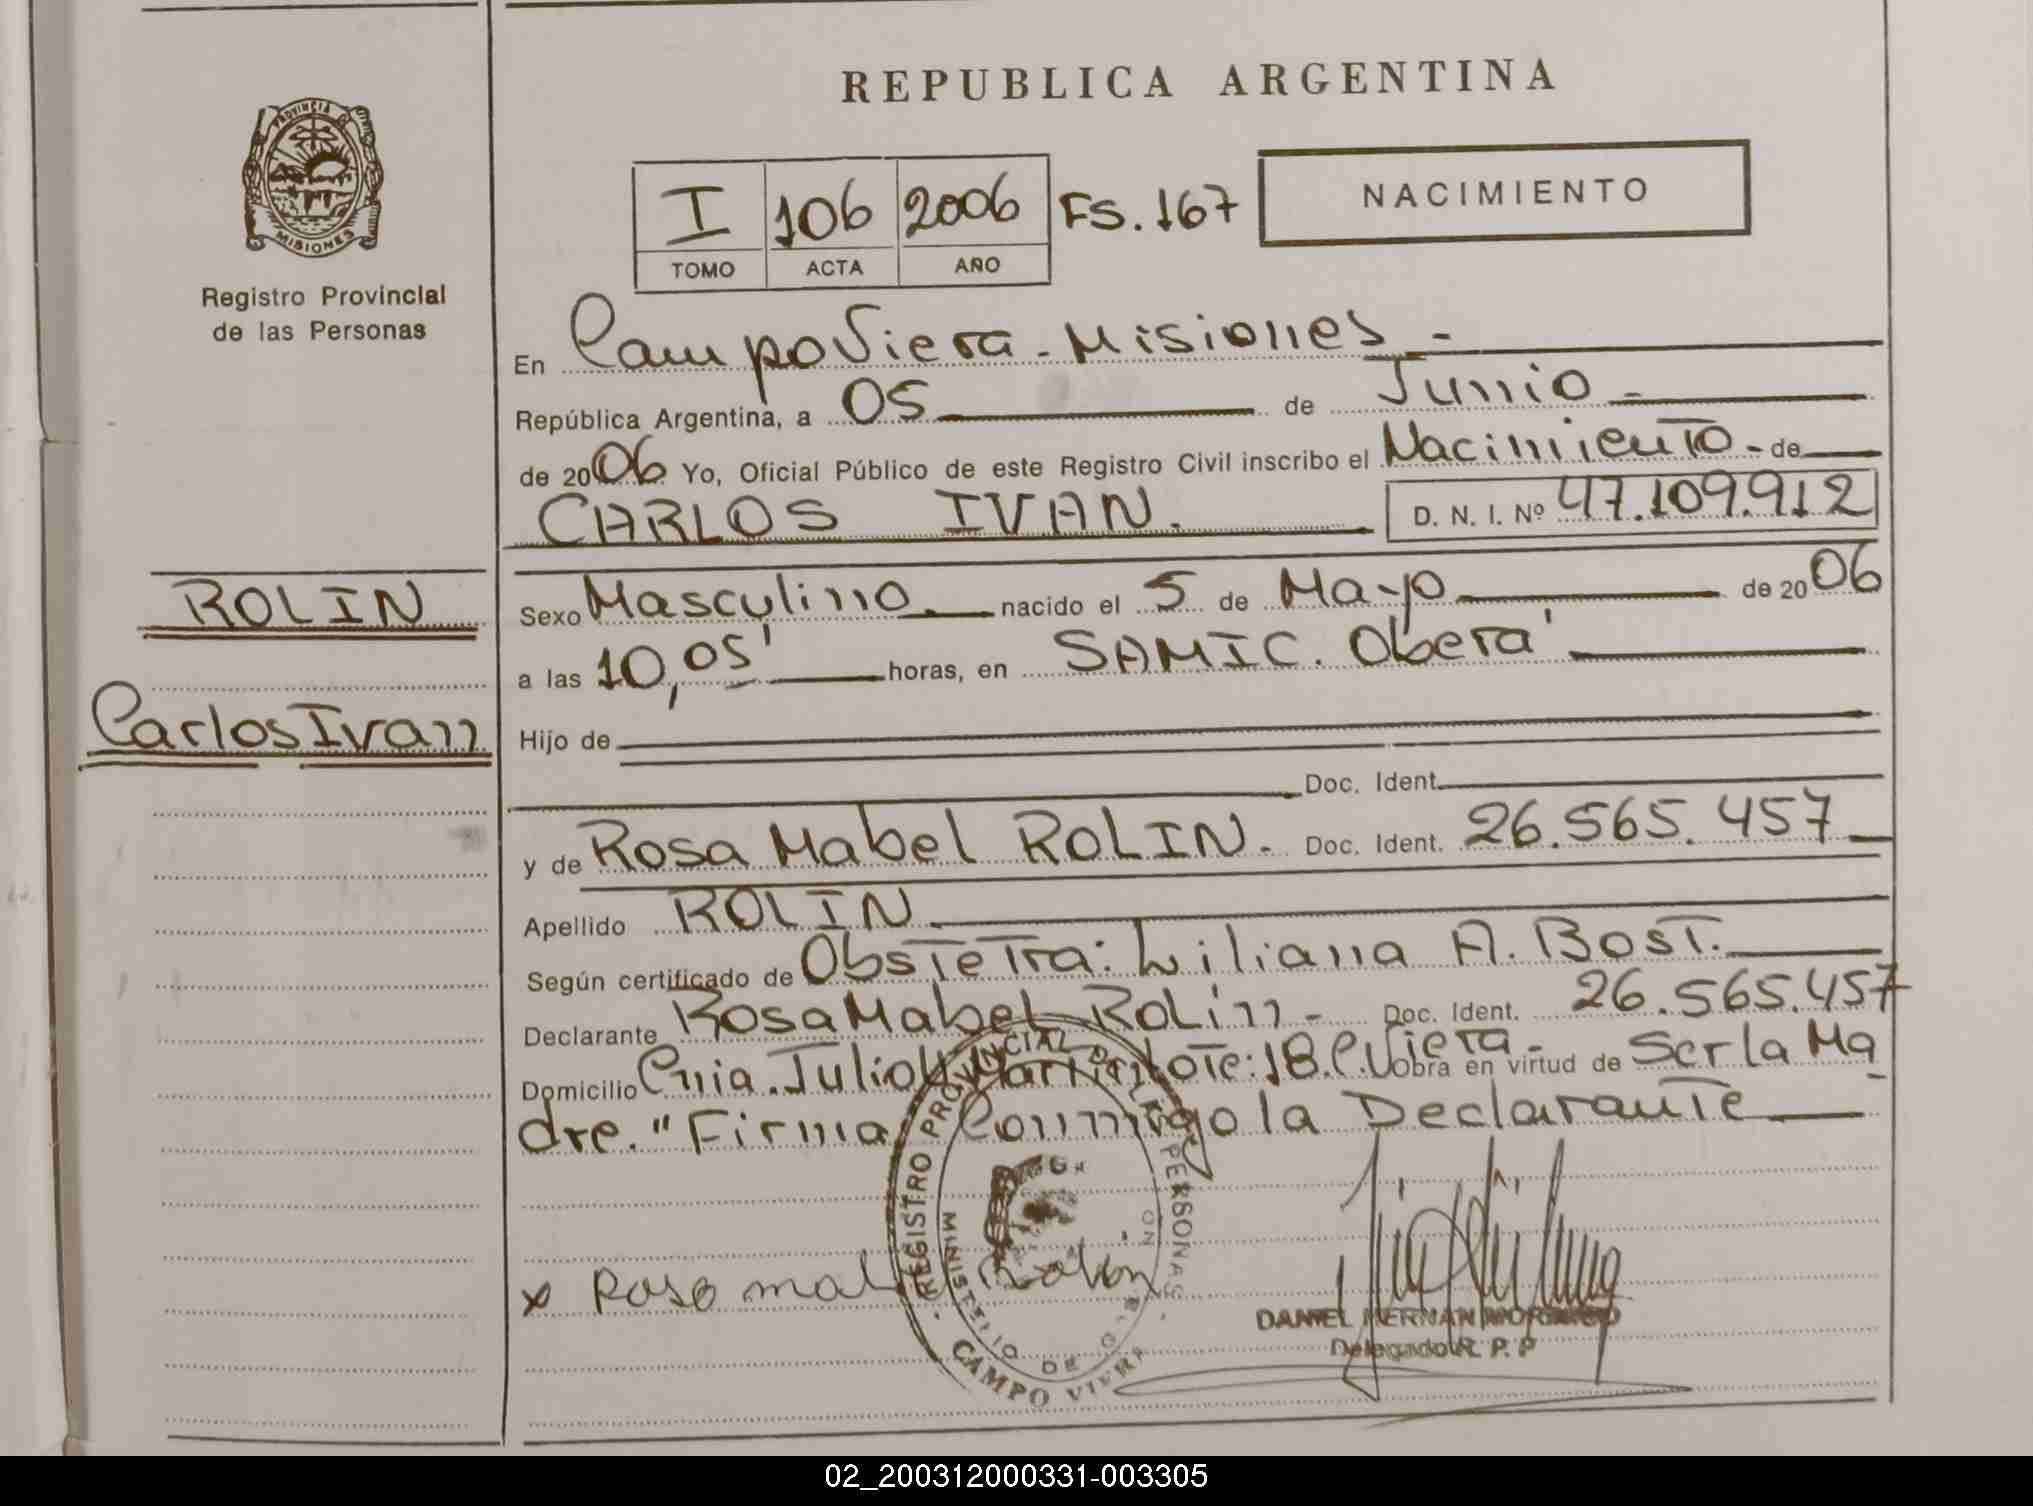 REPUBLICA ARGENTINA
PROVINCIA DE MISIONES
Registro Provincial
de las Personas
I 106 2006 FS. 167
TOMO ACTA AÑO
NACIMIENTO
En Campo Viera - Misiones -
República Argentina, a 05 de Junio -
de 2006 Yo, Oficial Público de este Registro Civil inscribo el Nacimiento - de
CARLOS IVAN. D. N. I. Nº 47.109.912
ROLIN
Carlos Ivan
Sexo Masculino. nacido el 5 de Mayo de 2006
a las 10,05' horas, en SAMIC. Oberá
Hijo de
Doc. Ident.
y de Rosa Mabel ROLIN. Doc. Ident. 26.565.457
Apellido ROLIN.
Según certificado de Obstetra: Liliana A. Bost.
Declarante Rosa Mabel Rolin - Doc. Ident. 26.565.457
Domicilio Cnia. Julio U. Martin Lote: 18. C. Viera - obra en virtud de Ser la Ma
dre. "Firma Conmigo la Declarante
REGISTRO PROVINCIAL DE LAS PERSONAS
MINISTERIO DE
CAMPO VIERA
x Rosa Rolin
DANIEL HERNAN
Delegado R. P. P
02_200312000331-003305